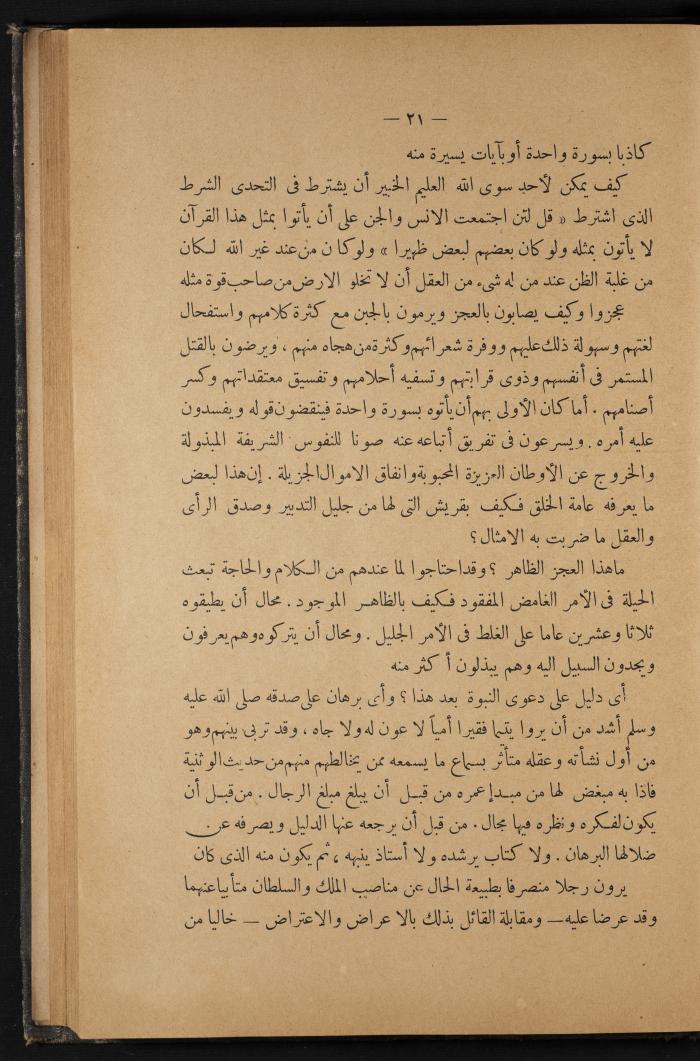 — ٢١ —
كاذبا بسورة واحدة أوبآيات يسيرة منه
كيف يمكن لأحد سوى الله العليم الخبير أن يشترط فى التحدى الشرط
الذى اشترط « قل لئن اجتمعت الانس والجن على أن يأتوا بمثل هذا القرآن
لا يأتون بمثله ولو كان بعضهم لبعض ظهيرا » ولو كان من عند غير الله لكان
من غلبة الظن عند من له شىء من العقل أن لا تخلو الارض من صاحب قوة مثله
عجزوا وكيف يصابون بالعجز ويرمون بالجبن مع كثرة كلامهم واستفحال
لغتهم وسهولة ذلك عليهم ووفرة شعرائهم وكثرة من هجاه منهم ، ويرضون بالقتل
المستمر فى أنفسهم وذوى قرابتهم وتسفيه أحلامهم وتفسيق معتقداتهم وكسر
أصنامهم . أما كان الأولى بهم أن يأتوه بسورة واحدة فينقضون قوله ويفسدون
عليه أمره . ويسرعون فى تفريق أتباعه عنه صونا للنفوس الشريفة المبذولة
والخروج عن الأوطان العزيزة المحبوبة وانفاق الاموال الجزيلة . إن هذا لبعض
ما يعرفه عامة الخلق فكيف بقريش التى لها من جليل التدبير وصدق الرأى
والعقل ما ضربت به الامثال ؟
ماهذا العجز الظاهر ؟ وقد احتاجوا لما عندهم من الكلام والحاجة تبعث
الحيلة فى الأمر الغامض المفقود فكيف بالظاهر الموجود . محال أن يطيقوه
ثلاثا وعشرين عاما على الغلط فى الأمر الجليل . ومحال أن يتركوه وهم يعرفون
ويجدون السبيل اليه وهم يبذلون أكثر منه
أى دليل على دعوى النبوة بعد هذا ؟ وأى برهان على صدقه صلى الله عليه
وسلم أشد من أن يروا يتيما فقيرا أمياً لا عون له ولا جاه ، وقد تربى بينهم وهو
من أول نشأته وعقله متأثر بسماع ما يسمعه ممن يخالطهم منهم من حديث الوثنية
فاذا به مبغض لها من مبدإ عمره من قبل أن يبلغ مبلغ الرجال . من قبل أن
يكون لفكره ونظره فيها مجال . من قبل أن يرجعه عنها الدليل ويصرفه عن
ضلالها البرهان . ولا كتاب يرشده ولا أستاذ ينبهه ، ثم يكون منه الذى كان
يرون رجلا منصرفا بطبيعة الحال عن مناصب الملك والسلطان متأبيا عنهما
وقد عرضا عليه — ومقابلة القائل بذلك بالاعراض والاعتراض — خاليا من